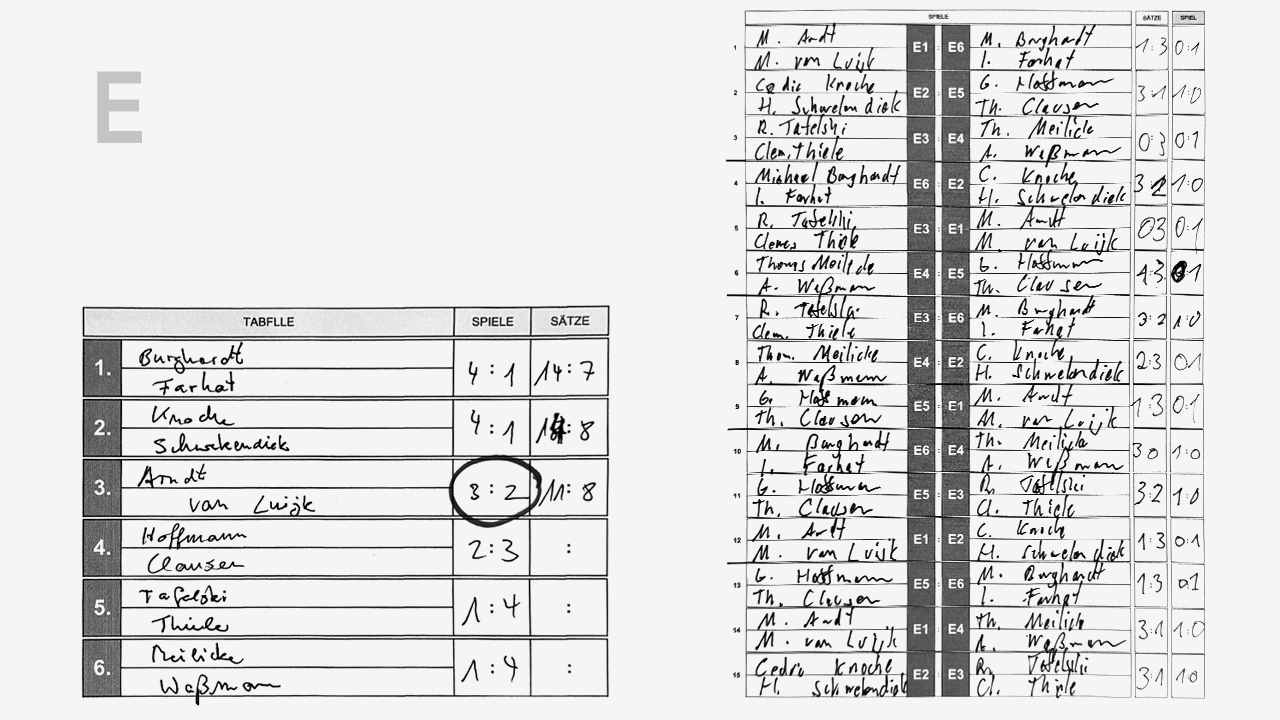 E
TABELLE SPIELE SÄTZE
1. Burghardt
Farhat
4 : 1 14 : 7
2. Knoche
Schwekendiek
4 : 1 : 8
3. Arndt
van Luijk
3 : 2 11 : 8
4. Hoffmann
Clausen
2 : 3 :
5. Tafelski
Thiele
1 : 4 :
6. Meilicke
Waßmann
1 : 4 :
SPIELE SÄTZE SPIEL
1 M. Arndt E1 : E6 M. Burghardt 1:3 0:1
M. van Luijk I. Farhat
2 Cedric Knoche E2 : E5 G. Hoffmann 3:1 1:0
H. Schwekendiek Th. Clausen
3 R. Tafelski E3 : E4 Th. Meilicke 0:3 0:1
Clem. Thiele A. Waßmann
4 Michael Burghardt E6 : E2 C. Knoche 3:2 1:0
I. Farhat H. Schwekendiek
5 R. Tafelski E3 : E1 M. Arndt 0 3 0:1
Clemens Thiele M. van Luijk
6 Thomas Meilicke E4 : E5 G. Hoffmann :3 :1
A. Waßmann Th. Clausen
7 R. Tafelski E3 : E6 M. Burghardt 3:2 1:0
Clem. Thiele I. Farhat
8 Thom. Meilicke E4 : E2 C. Knoche 2:3 0:1
A. Waßmann H. Schwekendiek
9 G. Hoffmann E5 : E1 M. Arndt 1:3 0:1
Th. Clausen M. van Luijk
10 M. Burghardt E6 : E4 Th. Meilicke 3 0 1:0
I. Farhat A. Waßmann
11 G. Hoffmann E5 : E3 R. Tafelski 3:2 1:0
Th. Clausen Cl. Thiele
12 M. Arndt E1 : E2 C. Knoche 1:3 0:1
M. van Luijk H. Schwekendiek
13 G. Hoffmann E5 : E6 M. Burghardt 1:3 0:1
Th. Clausen I. Farhat
14 M. Arndt E1 : E4 Th. Meilicke 3:1 1:0
M. van Luijk A. Waßmann
15 Cedric Knoche E2 : E3 R. Tafelski 3:1 1:0
H. Schwekendiek Cl. Thiele